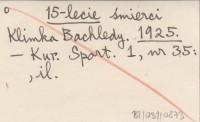 15-lecie śmierci
Klimka Bachledy. 1925.
— Kur. Sport. 1, nr 35:
, il.